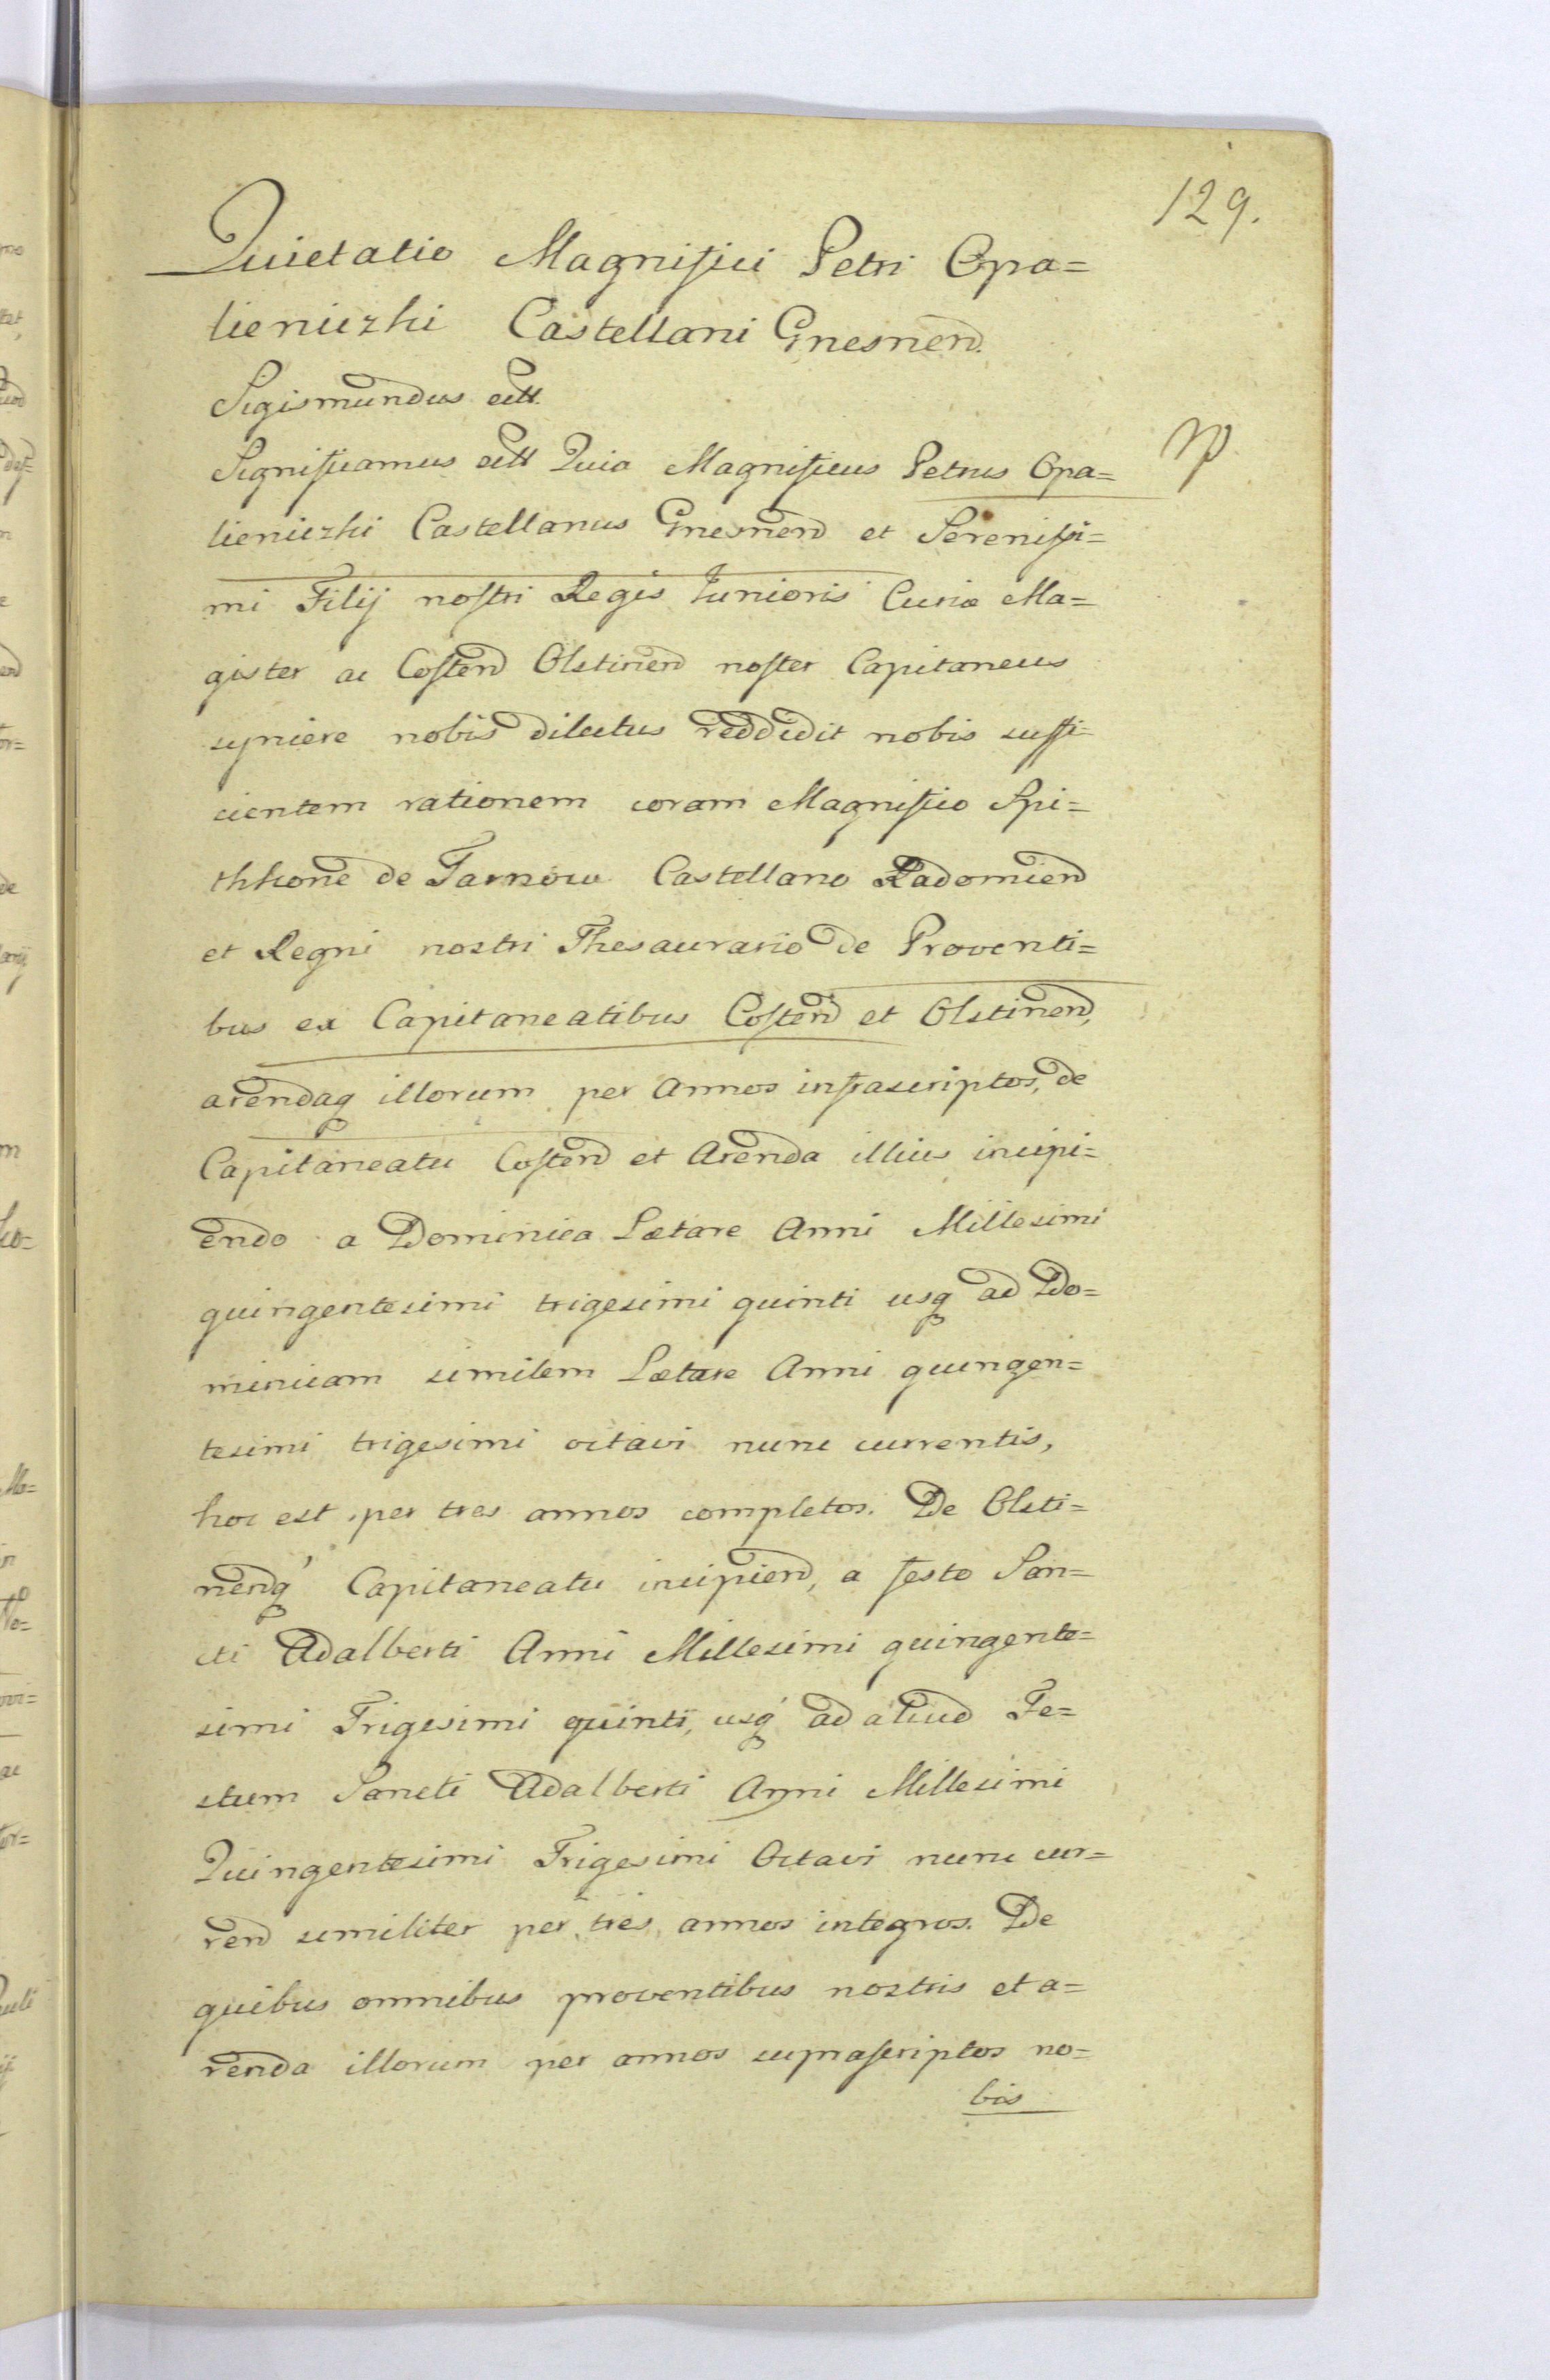 129.
Quietatio Magnifici Petri Opa=
lieniczki Castellani Gnesnen.
Sigismundus ett.
Significamus ett Quia Magnificus Petrus Opa=
lieniczki Castellanus Gnesnen et Serenissi=
mi Filij nostri Regis Iunioris Curiæ Ma=
gister ac Costen Olstinen noster Capitaneus
syncere nobis dilectus reddidit nobis suffi=
cientem rationem coram Magnifico Spi=
thkone de Tarnow Castellano Radomien
et Regni nostri Thesaurario de Proventi=
bus ex Capitaneatibus Costen et Olstinen,
arendaq illorum per Annos infrascriptos, de
Capitaneatu Costen et Arenda illius incipi=
endo a Dominica Lætare Anni Millesimi
quingentesimi trigesimi quinti usq ad Do=
minicam similem Lætare Anni quingen=
tesimi trigesimi octavi nunc currentis,
hoc est per tres annos completos. De Olsti=
nenq Capitaneatu incipien, a festo San=
cti Adalberti Anni Millesimi quingente=
simi Trigesimi quinti, usq ad aliud Fe=
stum Sancti Adalberti Anni Millesimi
Quingentesimi Trigesimi Octavi nunc cur=
ren similiter per tres annos integros. De
quibus omnibus proventibus nostris et a=
renda illorum per annos suprascriptos no=
bis